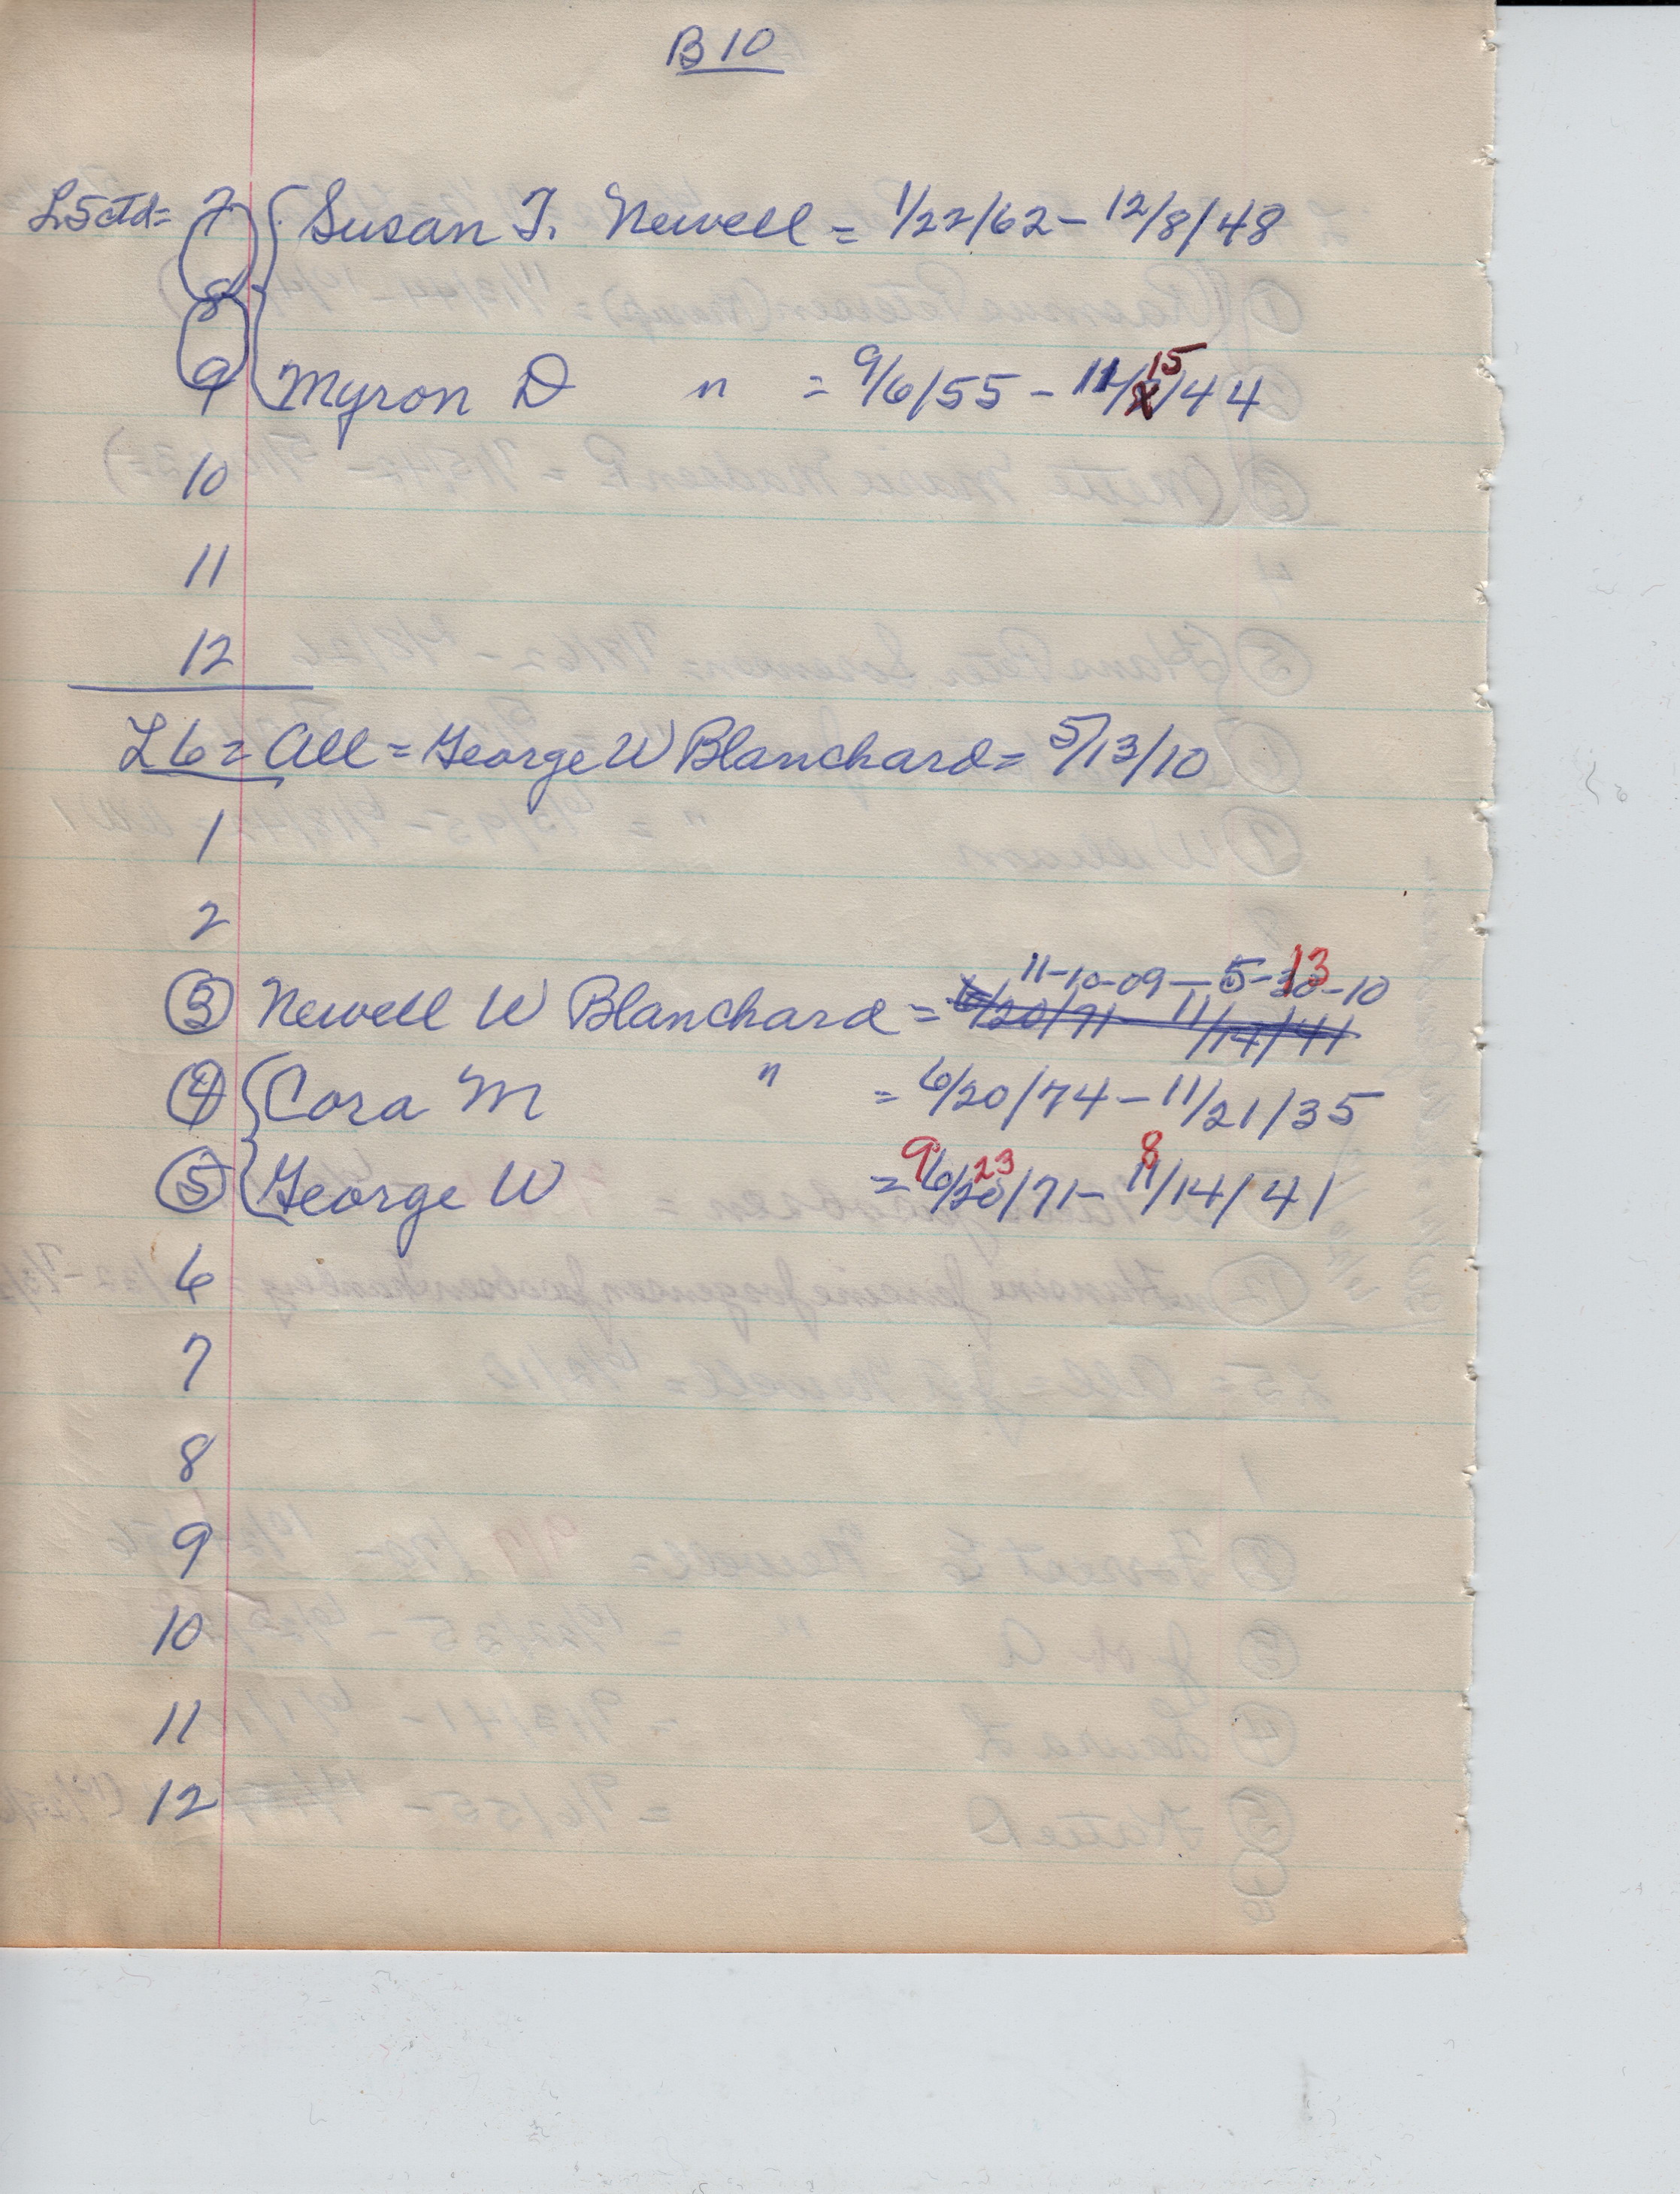 B 10
L5ctd= 7 Susan T. Newell = 1/22/62 - 12/8/48
8
9 Myron D " = 9/6/55 - 11/15/44
10
11
12
L6 = All = George W Blanchard = 5/13/10
1
2
11-10-09 - 5-13-10
3 Newell W Blanchard = 6/20/71 - 11/14/41
4 Cora M " = 6/20/74 - 11/21/35
9 23 8
5 George W = 6/20/71 - 11/14/41
6
7
8
9
10
11
12